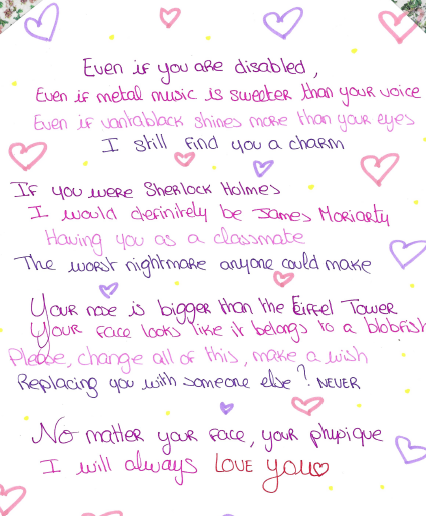 Even if you are disabled,
Even if metal music is sweeter than your voice
Even if vantablack shines more than your eyes
I still find you a charm
If you were Sherlock Holmes
I would definitely be James Moriarty
Having you as a classmate
The worst nightmare anyone could make
Your nose is bigger than the Eiffel Tower
Your face looks like it belongs to a blobfish
Please, change all of this, make a wish
Replacing you with someone else? NEVER
No matter your face, your phypique
I will always LOVE you